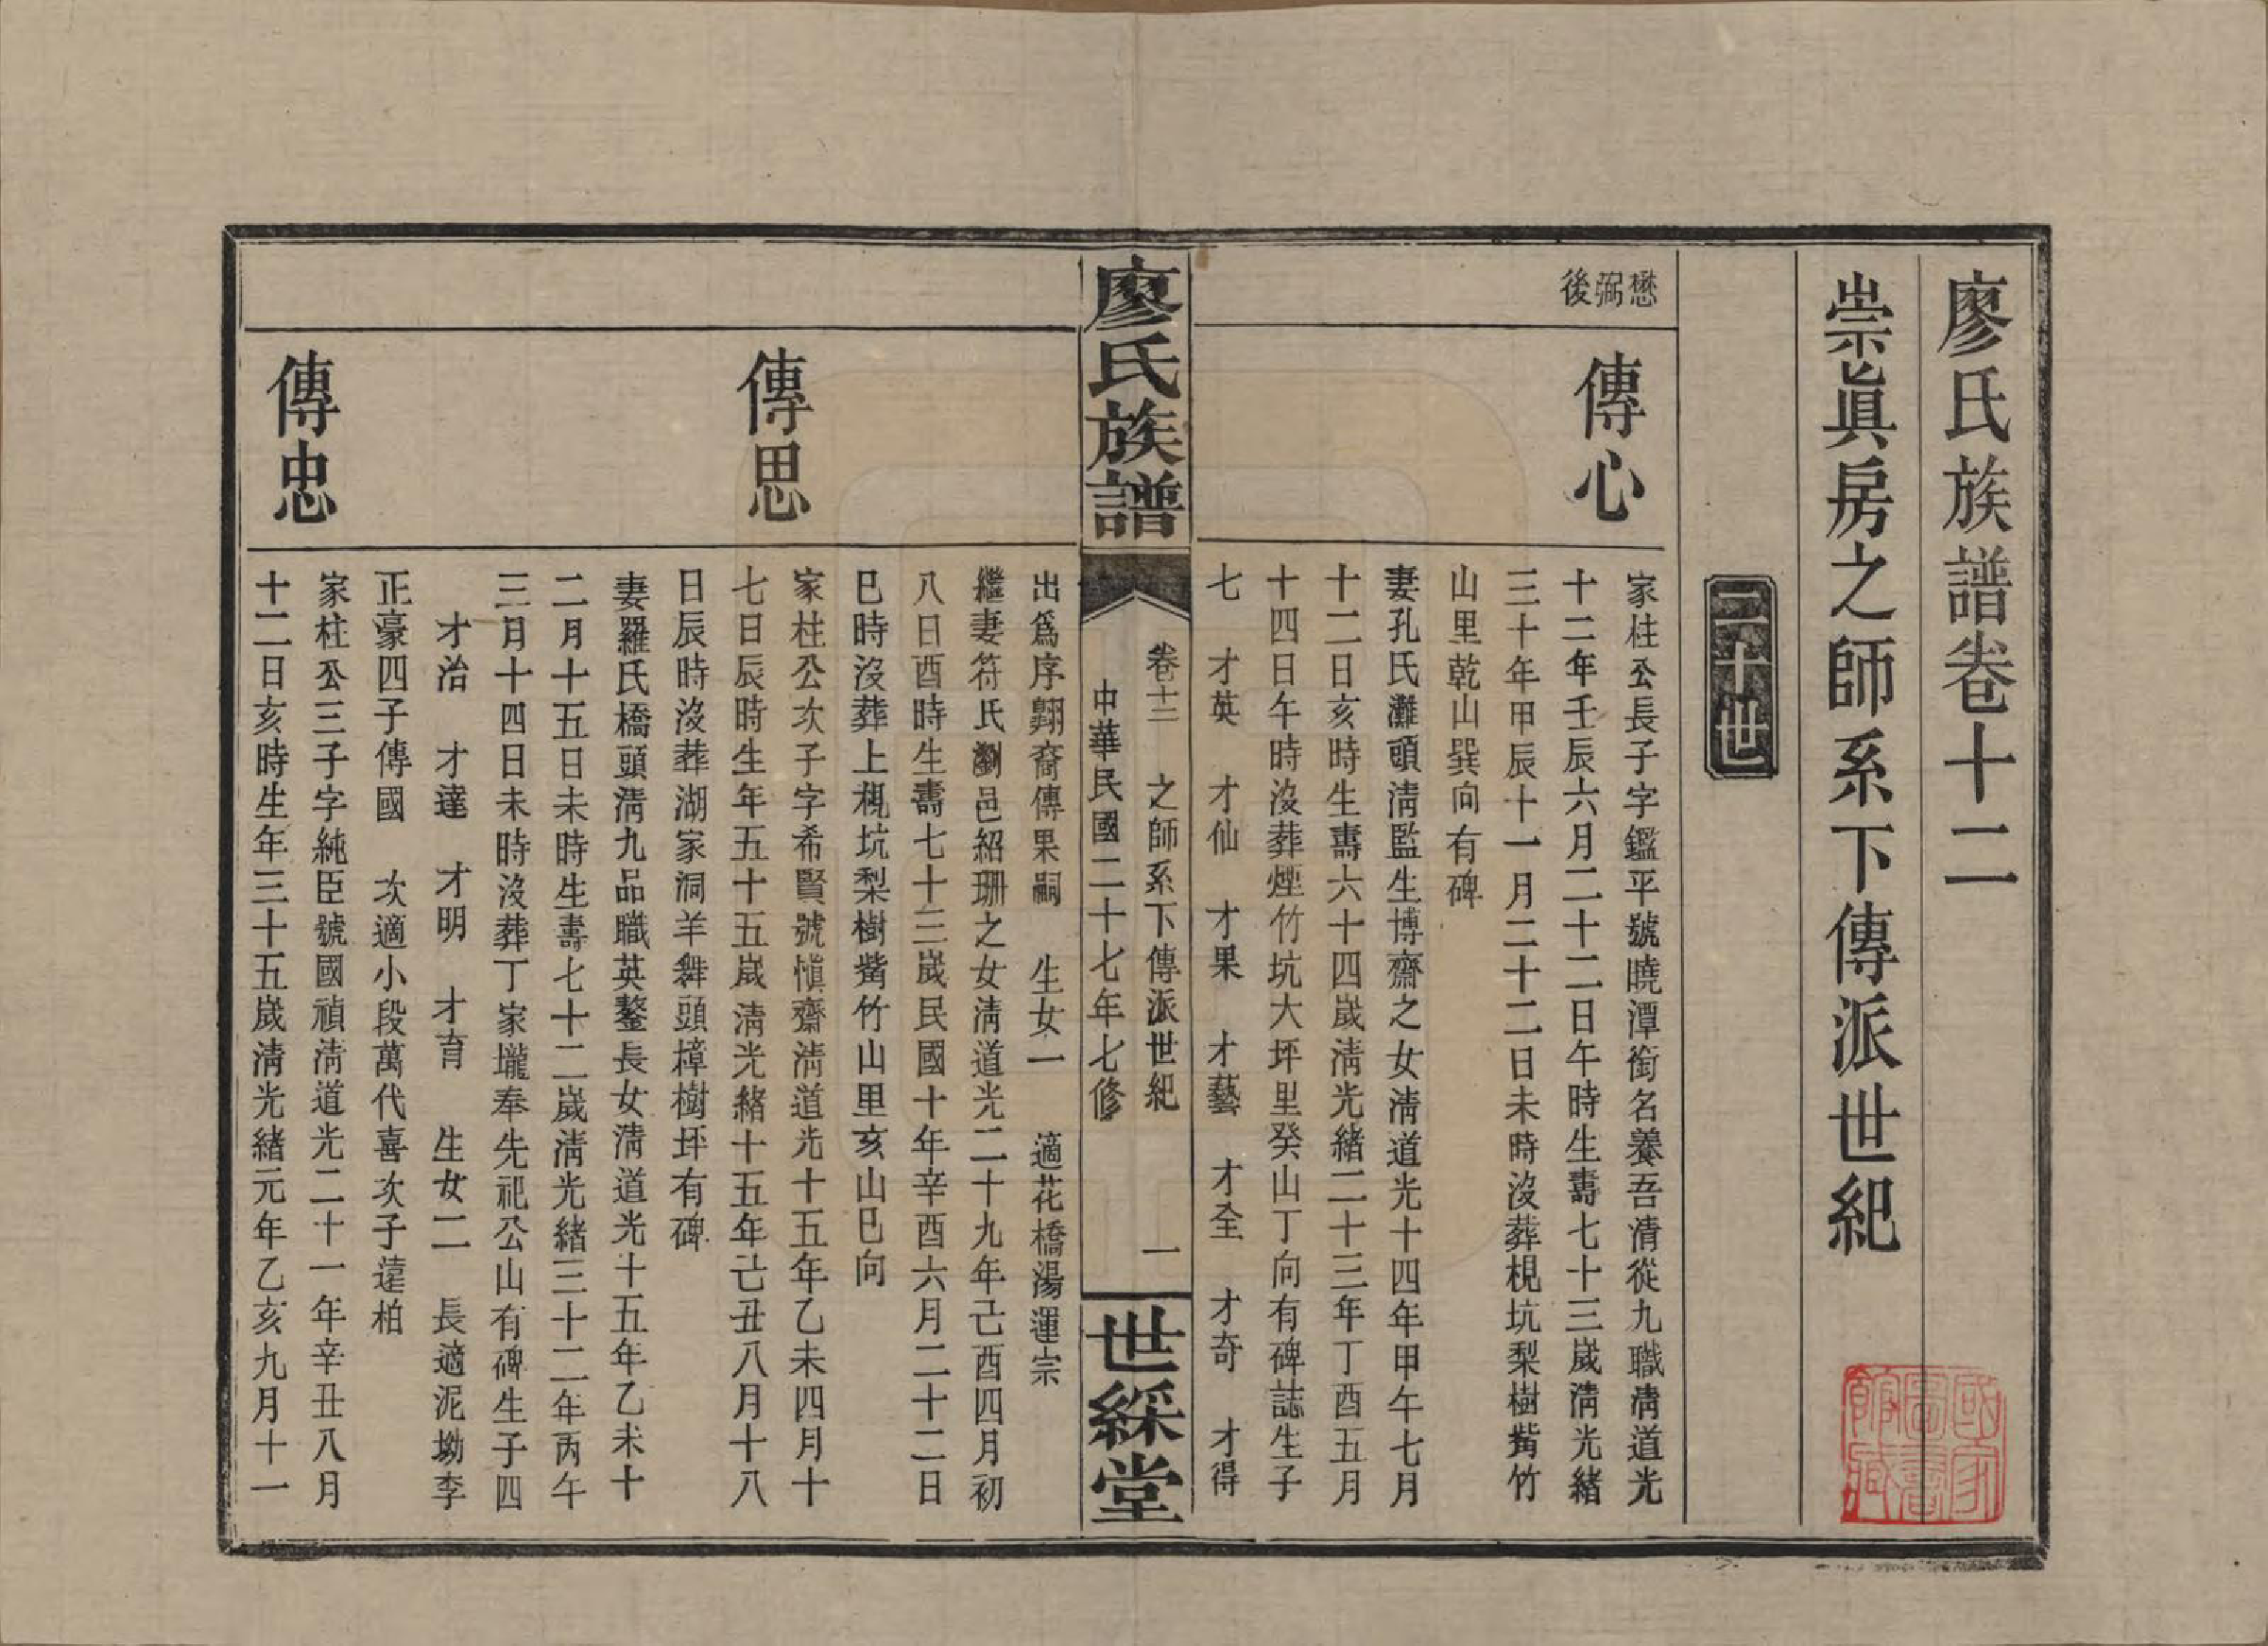 廖氏族譜卷十二
崇眞房之師系下傳派世紀
二十世
懋
弼
後
傳心
家柱公長子字鑑平號曉潭銜名養吾清從九職淸道光
十二年壬辰六月二十二日午時生壽七十三歲淸光緒
三十年甲辰十一月二十二日未時沒葬梘坑梨樹觜竹
山里乾山巽向有碑
妻孔氏灘頭淸監生博齋之女淸道光十四年甲午七月
十二日亥時生壽六十四歲淸光緒二十三年丁酉五月
十四日午時沒葬煙竹坑大坪里癸山丁向有碑誌生子
七 才英 才仙 才果 才藝 才全 才奇 才得
廖氏族譜
卷十二 之師系下傳派世紀 一
中華民國二十七年七修
世綵堂
出爲序翺裔傳果嗣 生女一 適花橋湯運宗
繼妻符氏瀏邑紹珊之女淸道光二十九年己酉四月初
八日酉時生壽七十三歲民國十年辛酉六月二十二日
巳時沒葬上梘坑梨樹觜竹山里亥山巳向
傳思
家柱公次子字希賢號愼齋淸道光十五年乙未四月十
七日辰時生年五十五歲淸光緒十五年己丑八月十八
日辰時沒葬湖家洞羊舞頭樟樹坪有碑
妻羅氏橋頭淸九品職英鏊長女淸道光十五年乙未十
二月十五日未時生壽七十二歲淸光緒三十二年丙午
三月十四日未時沒葬丁家壠奉先祀公山有碑生子四
才治 才達 才明 才育 生女二 長適泥坳李
正豪四子傳國 次適小段萬代喜次子遠柏
傳忠
家柱公三子字純臣號國禎淸道光二十一年辛丑八月
十二日亥時生年三十五歲淸光緒元年乙亥九月十一
國家
圖書
館藏